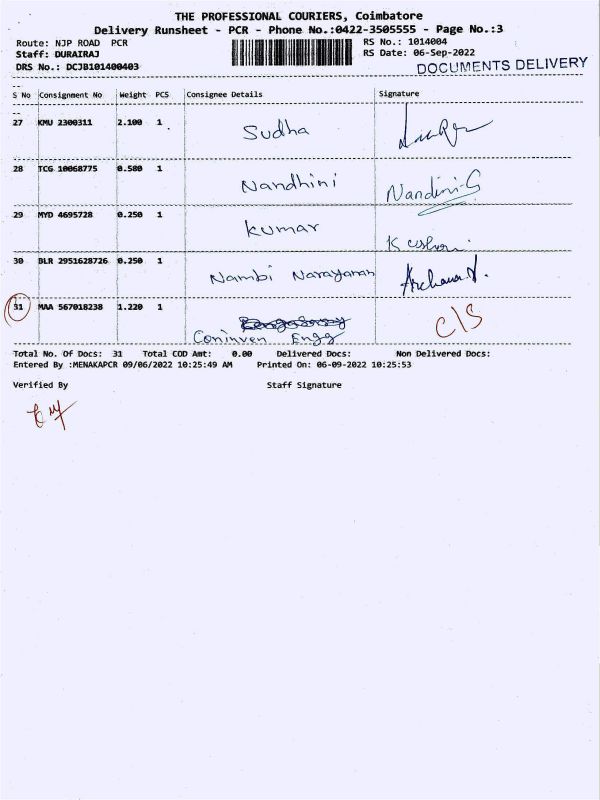 THE PROFESSIONAL COURIERS, Coimbatore
Delivery Runsheet - PCR - Phone No.:0422-3505555 - Page No.:3
Route: NJP ROAD PCR
RS No.: 1014004
Staff: DURAIRAJ
RS Date: 06-Sep-2022
DRS No.: DCJB101400403
DOCUMENTS DELIVERY
S No Consignment No Weight PCS Consignee Details Signature
27 KMU 2300311 2.100 1 Sudha
28 TCG 10068775 0.580 1 Nandhini Nandini.G
29 MYD 4695728 0.250 1 Kumar
30 BLR 2951628726 0.250 1 Nambi Narayanan Archana
31 MAA 567018238 1.220 1 C/S
Coninven Engg
Total No. Of Docs: 31 Total COD Amt: 0.00 Delivered Docs: Non Delivered Docs:
Entered By :MENAKAPCR 09/06/2022 10:25:49 AM Printed On: 06-09-2022 10:25:53
Verified By Staff Signature